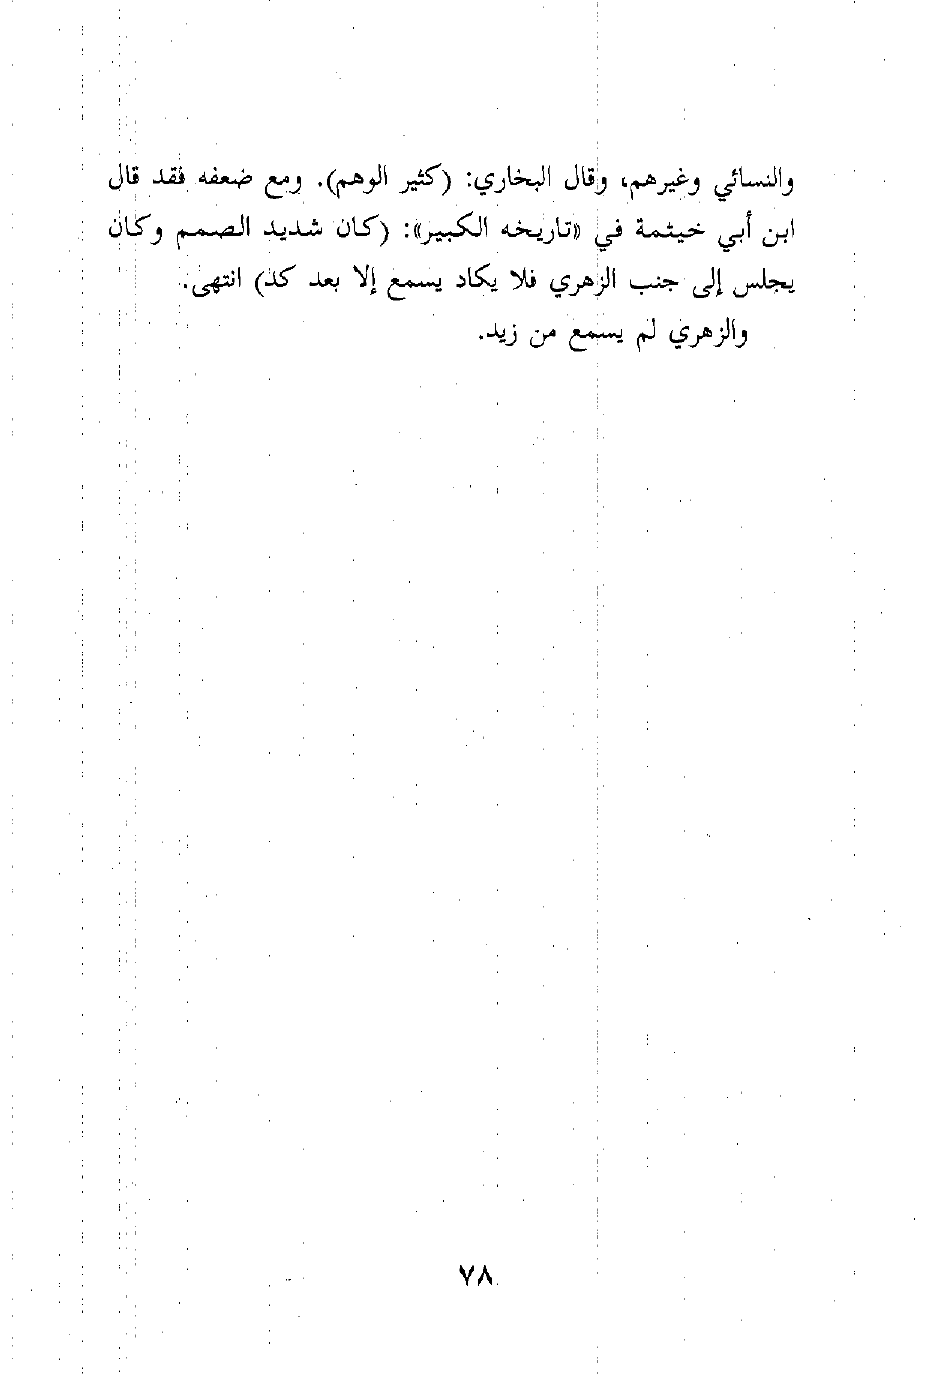 والنسائي وغيرهم، وقال البخاري: (كثير الوهم). ومع ضعفه فقد قال
ابن أبي خيثمة في «تاريخه الكبير»: (كان شديد الصمم وكان
يجلس إلى جنب الزهري فلا يكاد يسمع إلا بعد كد) انتهى.
والزهري لم يسمع من زيد.
٧٨